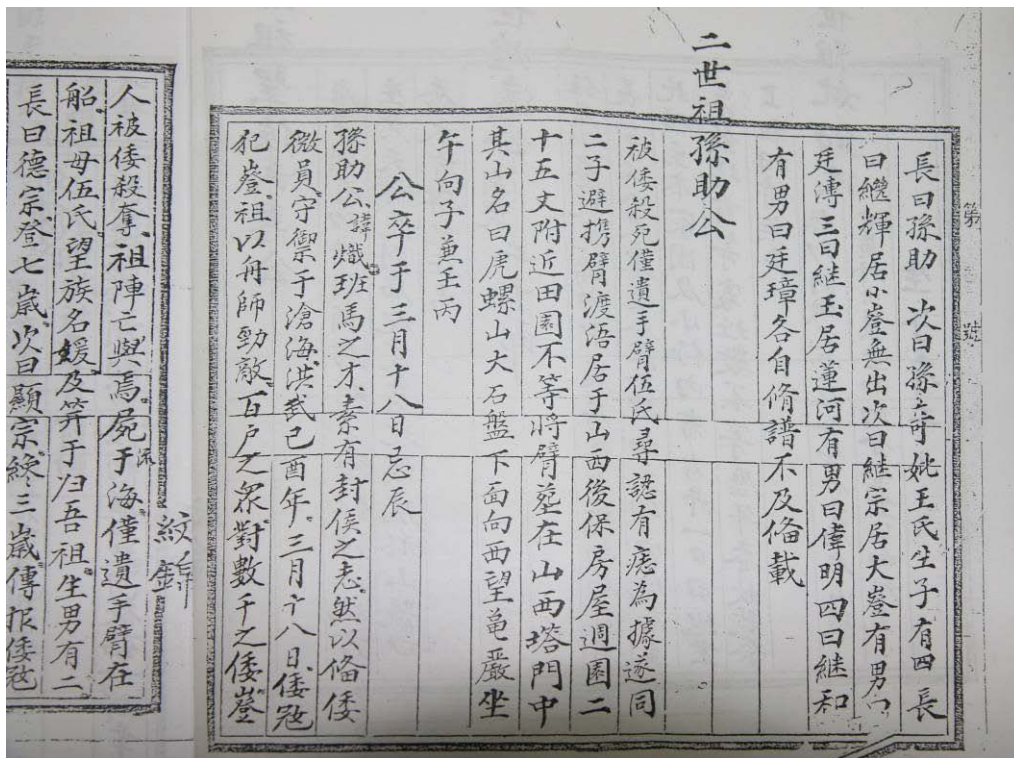 第 號
長曰孫助 次曰孫奇 妣王氏生子有四 長
曰繼輝居小嶝無出次曰継宗居大嶝有男曰
廷溥三曰継玉居蓮河有男曰偉明四曰継和
有男曰廷璋各自脩譜不及俻載
二世祖孫助公
被倭殺死僅遺手臂伍氏尋認有痣為據遂同
二子避携臂渡浯居于山西後保房屋週圍二
十五丈附近田園不等將臂塟在山西塔門中
其山名曰虎螺山大石盤下面向西望龟嚴坐
午向子兼壬丙
公卒于三月十八日忌辰
孫助公諱熾班馬之才素有封侯之志然以俻倭
微員守禦于滄海洪武己酉年三月十八日倭冦
犯嶝祖以舟師勁敵百户之眾對數千之倭嶝
人被倭殺奪祖陣亡與焉屍流于海僅遺手臂在
船祖母伍氏望族名媛及笄于归吾祖生男有二
長曰德宗登七歲次曰顯宗纔三歲傳报倭冦
紋錦